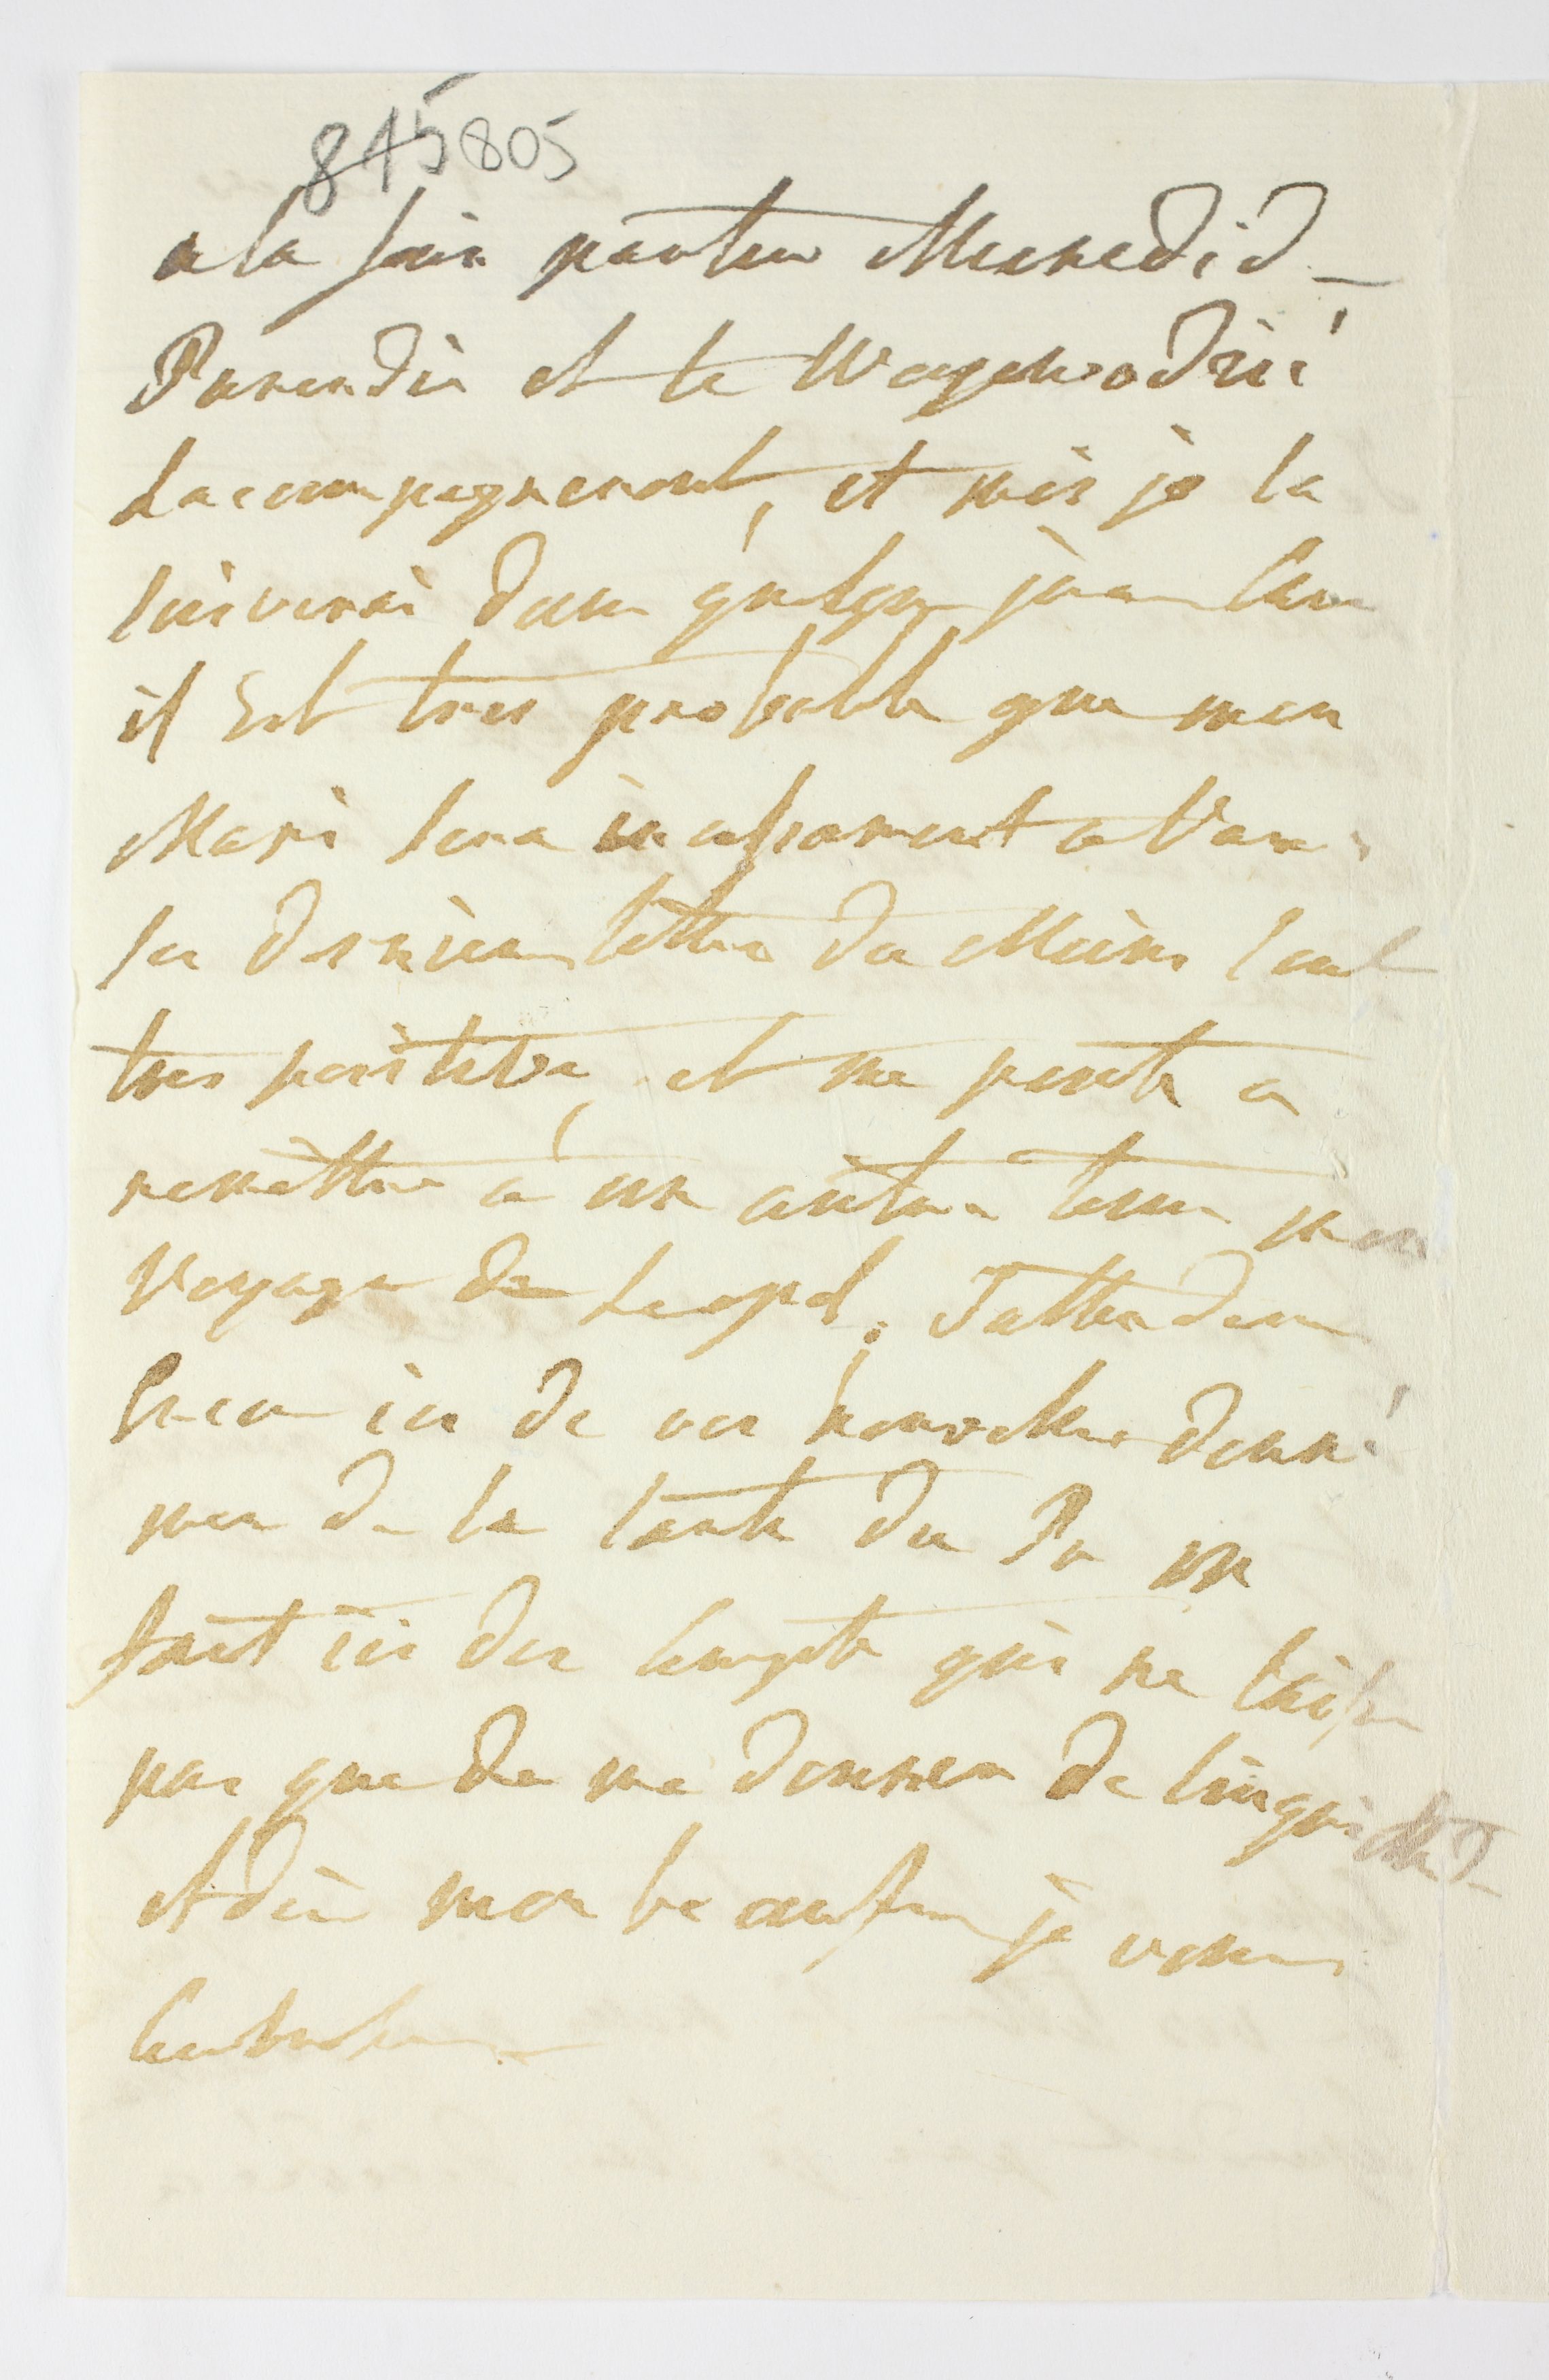 845 805
a la faire partir Mercredi d_
Parendier et le Woyewodzic
Lacompagneront, et moi je la
suiverai dans quelque jours Car
il Est tres probable que mon
Mari sera incessament a Vars
les dernieres lettres du Meine sont
tres positive, et me porte a
remettre a un autre tems mon
Voyage de Leopol. J'attendrai
ici de vos nouvelles donné
moi de la santé du Pr on
fait ici des Compte qui ne laisse
pas que de me donner de linquietud_
Adieu mon beaufrere je vous
Embrasse